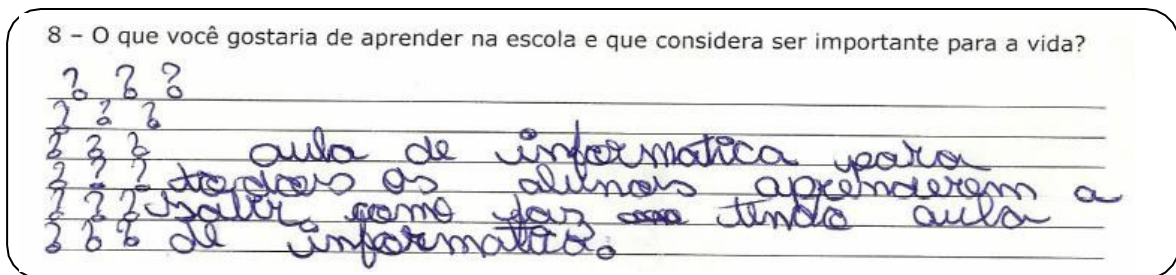 8 – O que você gostaria de aprender na escola e que considera ser importante para a vida?
? ? ?
? ? ?
? ? ? aula de informatica para
? ? ? todos os alunos aprenderem a
? ? ? saber como faz tendo aula
? ? ? de informatica.